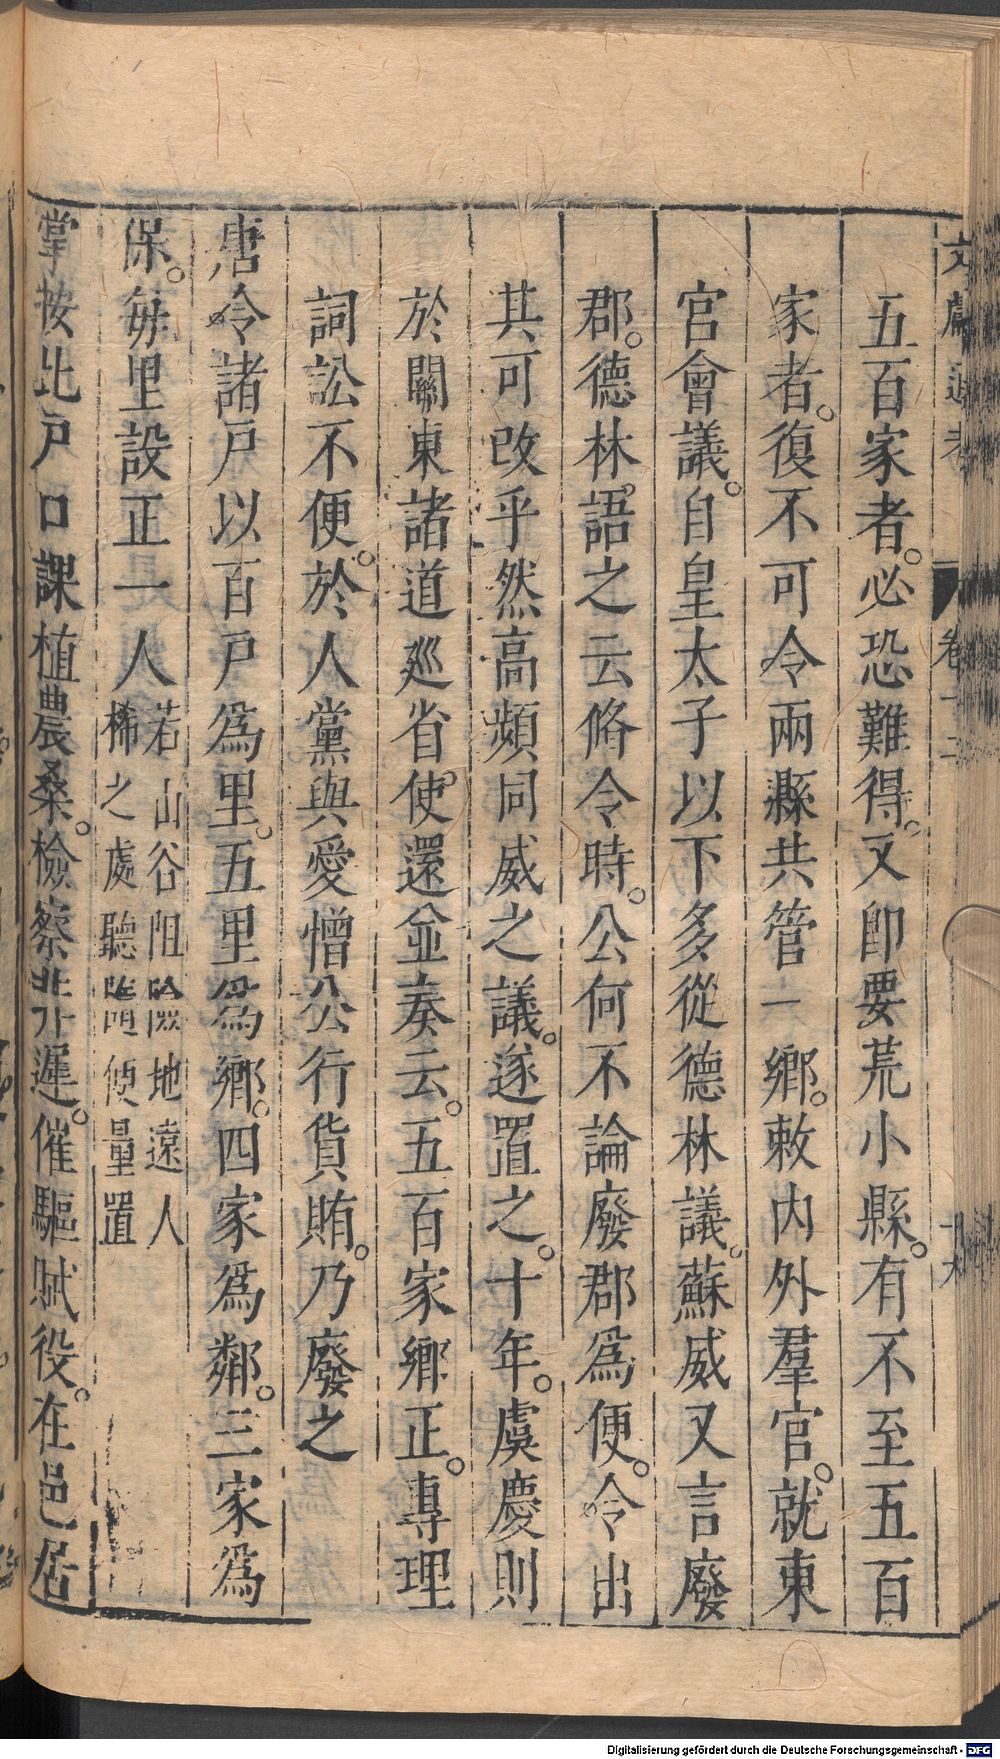 文獻通考 卷十二 十九
五百家者必恐難得又卽要荒小縣有不至五百
家者復不可令兩縣共管一鄉敕內外羣官就東
宮會議自皇太子以下多從德林議蘇威又言廢
郡德林語之云脩令時公何不論廢郡爲便令出
其可改乎然高熲同威之議遂置之十年虞慶則
於關東諸道廵省使還並奏云五百家鄉正專理
詞訟不便於人黨與愛憎公行貨賄乃廢之
唐令諸戶以百戶爲里五里爲鄉四家爲鄰三家爲
保每里設正一人若山谷阻險地遠人
稀之處聽隨便量置
掌按比戶口課植農桑檢察非違催驅賦役在邑居
Digitalisierung gefördert durch die Deutsche Forschungsgemeinschaft - DFG